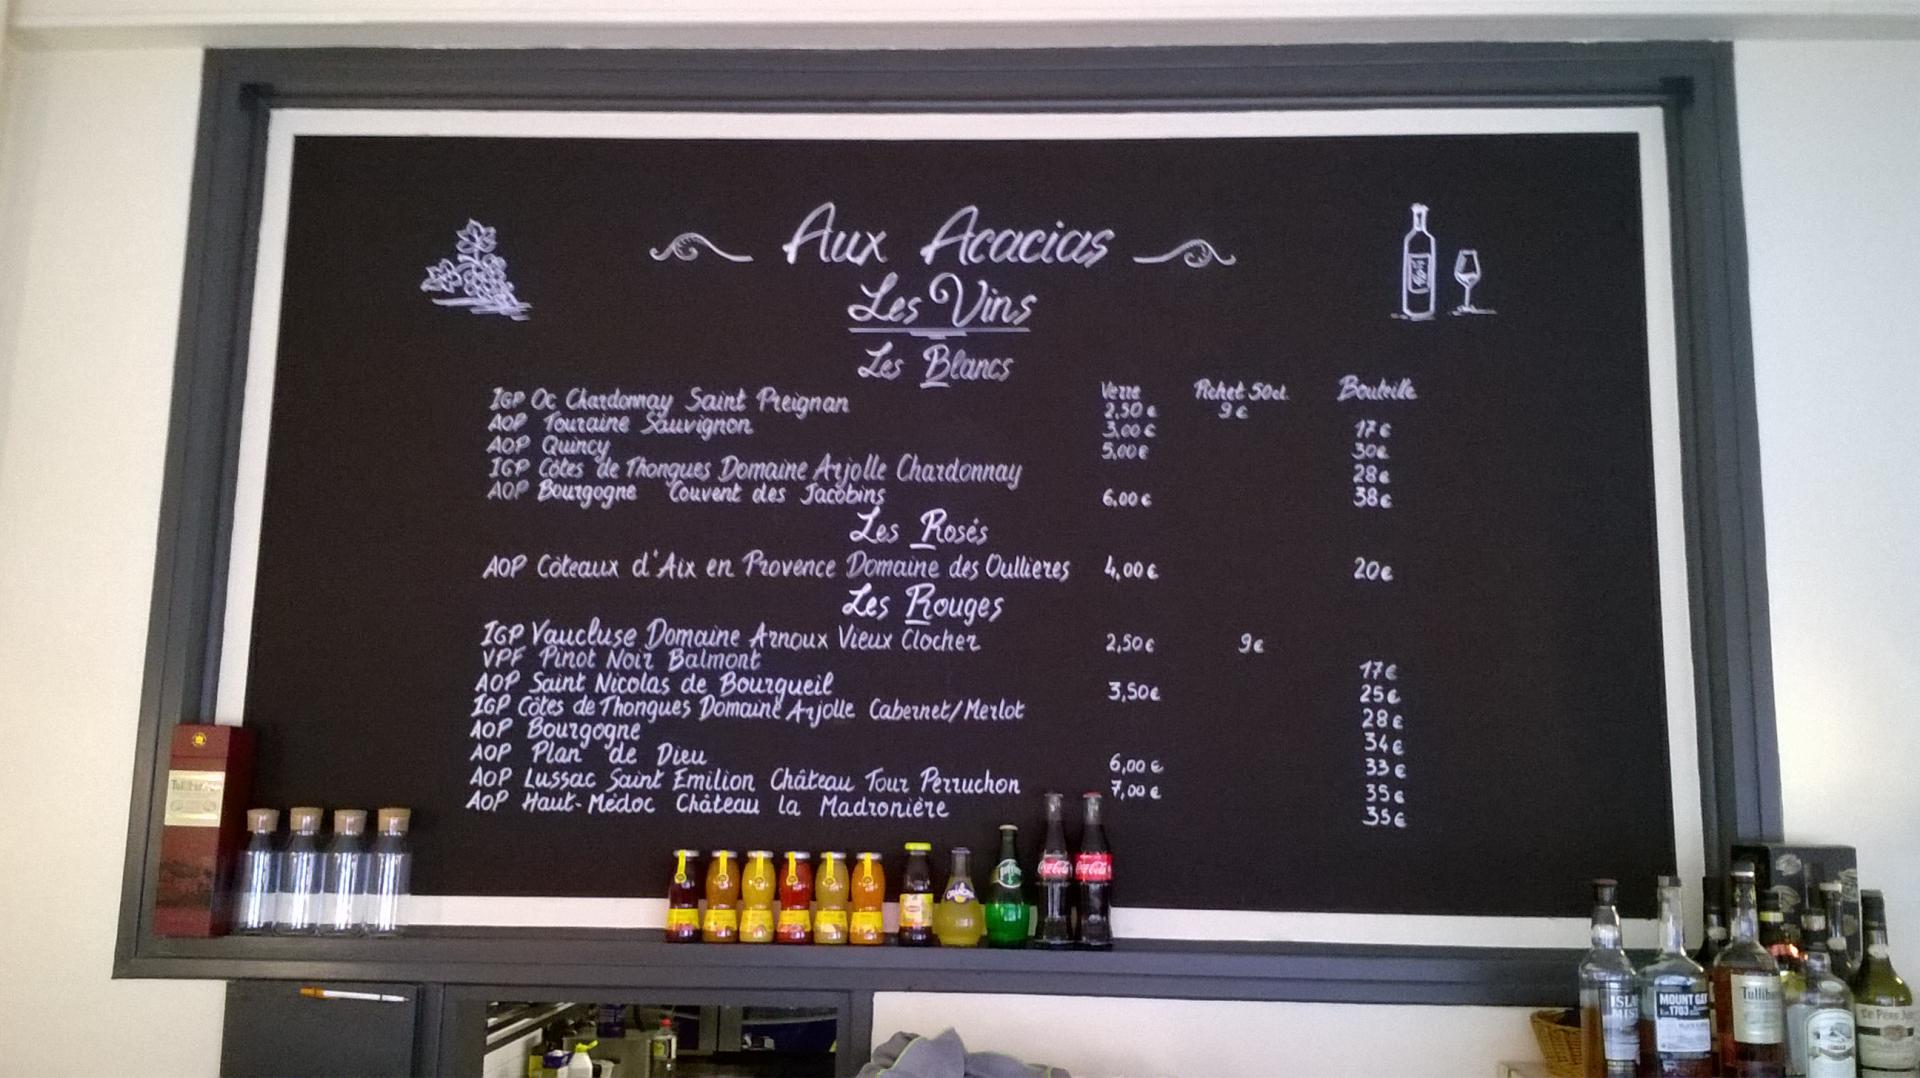 Aux Acacias
Les Vins
Les Blancs
Verre Pichet 50cl. Bouteille
IGP Oc Chardonnay Saint Preignan 2,50 € 9 €
AOP Touraine Sauvignon 3,00 € 17 €
AOP Quincy 5,00 € 30 €
IGP Côtes de Thongues Domaine Arjolle Chardonnay 28 €
AOP Bourgogne Couvent des Jacobins 6,00 € 38 €
Les Rosés
AOP Côteaux d'Aix en Provence Domaine des Oullières 4,00 € 20 €
Les Rouges
IGP Vaucluse Domaine Arnoux Vieux Clocher 2,50 € 9 €
VPF Pinot Noir Balmont 17 €
AOP Saint Nicolas de Bourgueil 3,50 € 25 €
IGP Côtes de Thongues Domaine Arjolle Cabernet/Merlot 28 €
AOP Bourgogne 34 €
AOP Plan de Dieu 6,00 € 33 €
AOP Lussac Saint Emilion Château Tour Perruchon 7,00 € 35 €
AOP Haut-Médoc Château la Madronière 35 €
Coca-Cola
Coca-Cola
MOUNT GAY
1703